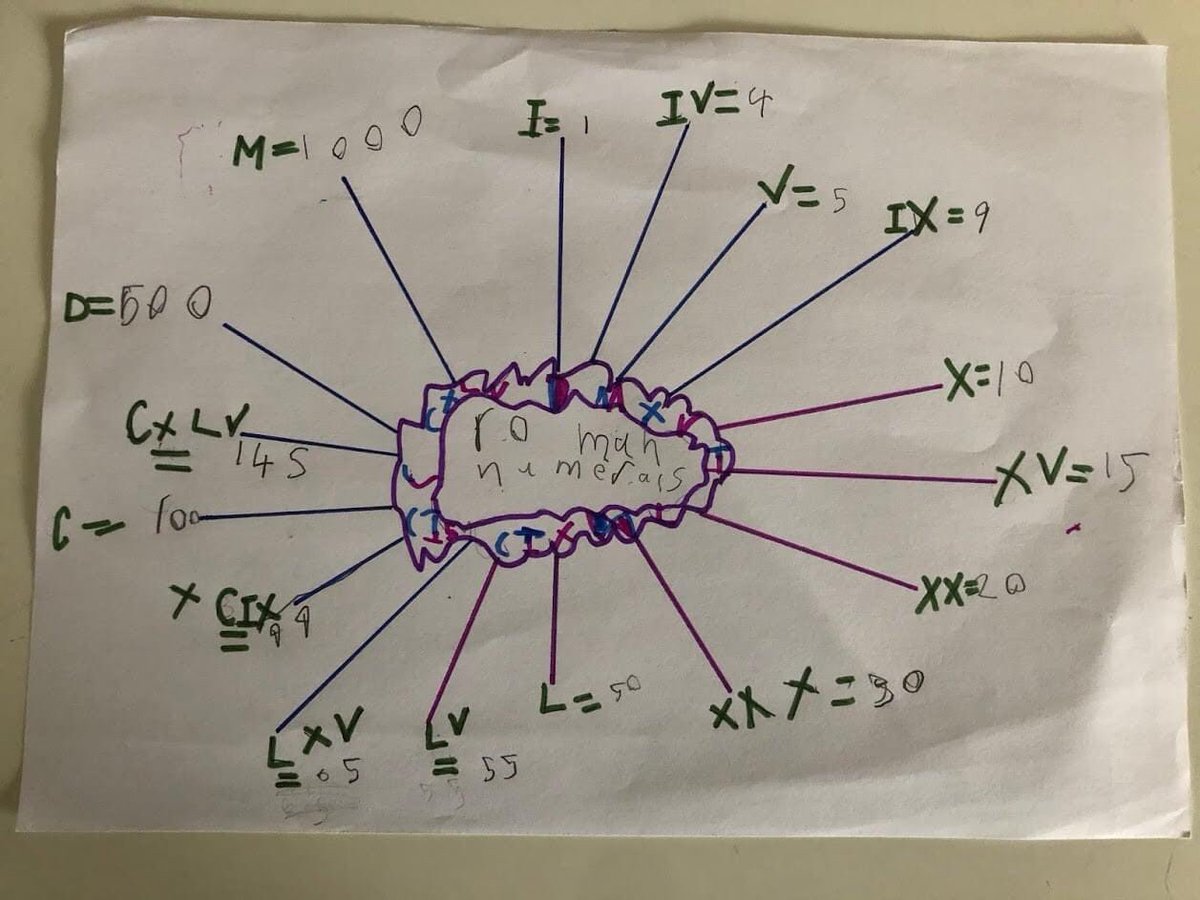 ro man
numerals
I= 1
IV=4
V=5
IX=9
X=10
XV=15
XX=20
XXX=30
L=50
LV
= 55
LXV
= 65
XCIX
= 99
C= 100
CXLV
= 145
D=500
M=1000